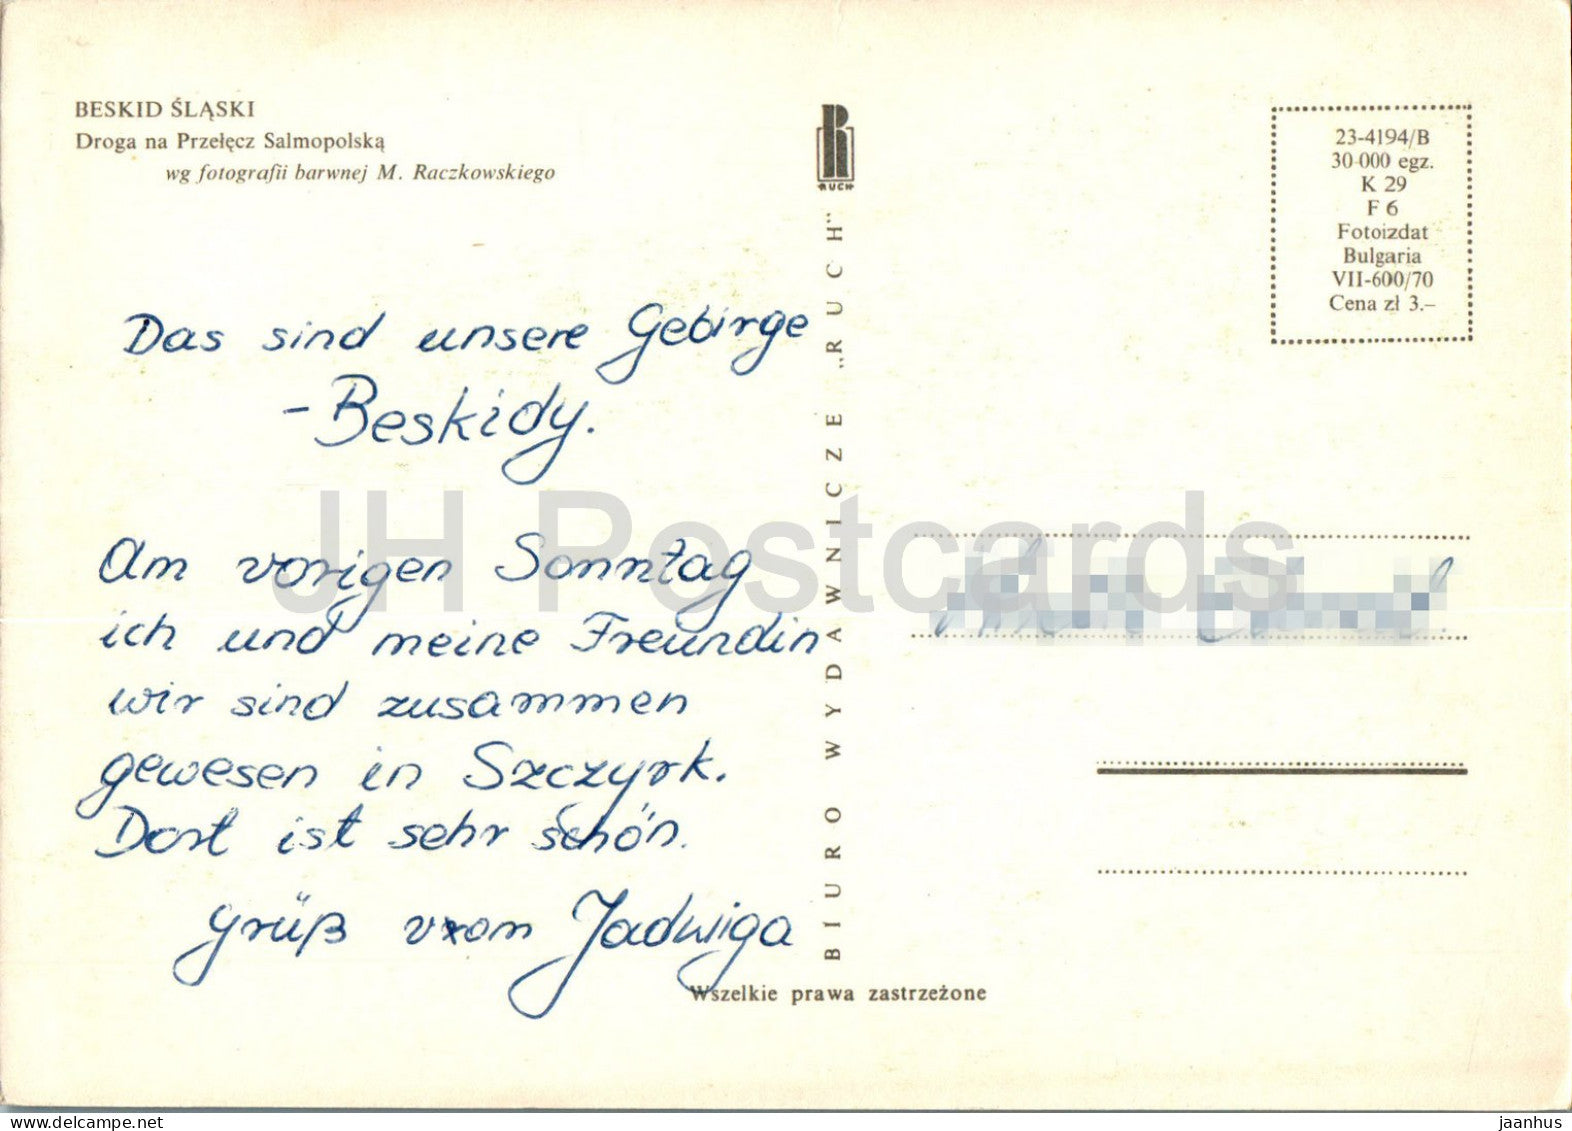 BESKID ŚLĄSKI
Droga na Przełęcz Salmopolską
wg fotografii barwnej M. Raczkowskiego
RUCH
23-4194/B
30-000 egz.
K 29
F 6
Fotoizdat
Bulgaria
VII-600/70
Cena zł 3.–
BIURO WYDAWNICZE „RUCH”
Das sind unsere Gebirge
– Beskidy.
Am vorigen Sonntag
ich und meine Freundin
wir sind zusammen
gewesen in Szczyrk.
Dort ist sehr schön.
Grüß von Jadwiga
Wszelkie prawa zastrzeżone
JH Postcards
delcampe.net
jaanhus